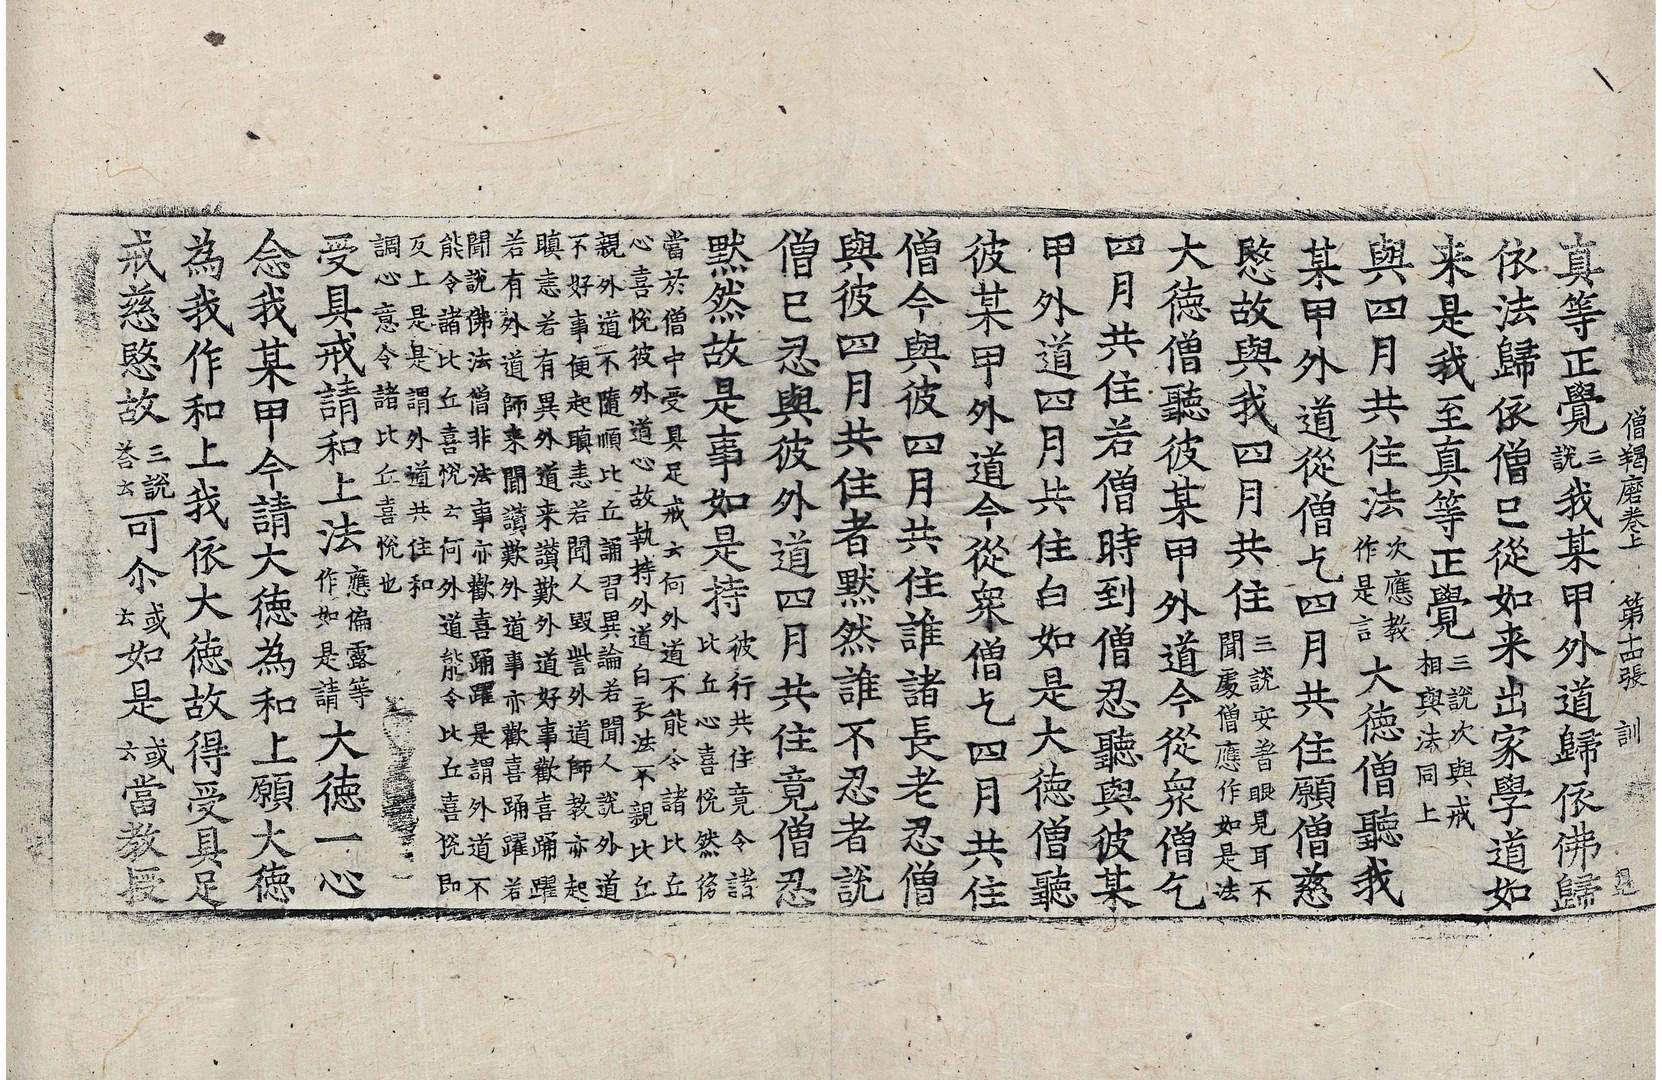 僧羯磨卷上 第十四張 訓
真等正覺三說我某甲外道歸依佛歸
依法歸依僧已從如来出家學道如
来是我至真等正覺三說次與戒相與法同上
與四月共住法次應教作是言大德僧聽我
某甲外道從僧乞四月共住願僧慈
愍故與我四月共住三說安著眼見耳不聞處僧應作如是法
大德僧聽彼某甲外道今從衆僧乞
四月共住若僧時到僧忍聽與彼某
甲外道四月共住白如是大德僧聽
彼某甲外道今從衆僧乞四月共住
僧今與彼四月共住誰諸長老忍僧
與彼四月共住者默然誰不忍者說
僧已忍與彼外道四月共住竟僧忍
默然故是事如是持彼行共住竟令諸比丘心喜悅然後
當於僧中受具足戒云何外道不能令諸比丘
心喜悅彼外道心故執持外道白衣法不親比丘
親外道不隨順比丘誦習異論若聞人說外道
不好事便起瞋恚若聞人毀訾外道師教亦起
瞋恚若有異外道来讃歎外道好事歡喜踊躍
若有外道師来聞讃歎外道事亦歡喜踊躍若
聞說佛法僧非法事亦歡喜踊躍是謂外道不
能令諸比丘喜悅云何外道能令比丘喜悅即
反上是是謂外道共住和
調心意令諸比丘喜悅也
受具戒請和上法應偏露等作如是請大德一心
念我某甲今請大德為和上願大德
為我作和上我依大德故得受具足
戒慈愍故三說荅云可尒或云如是或云當教授